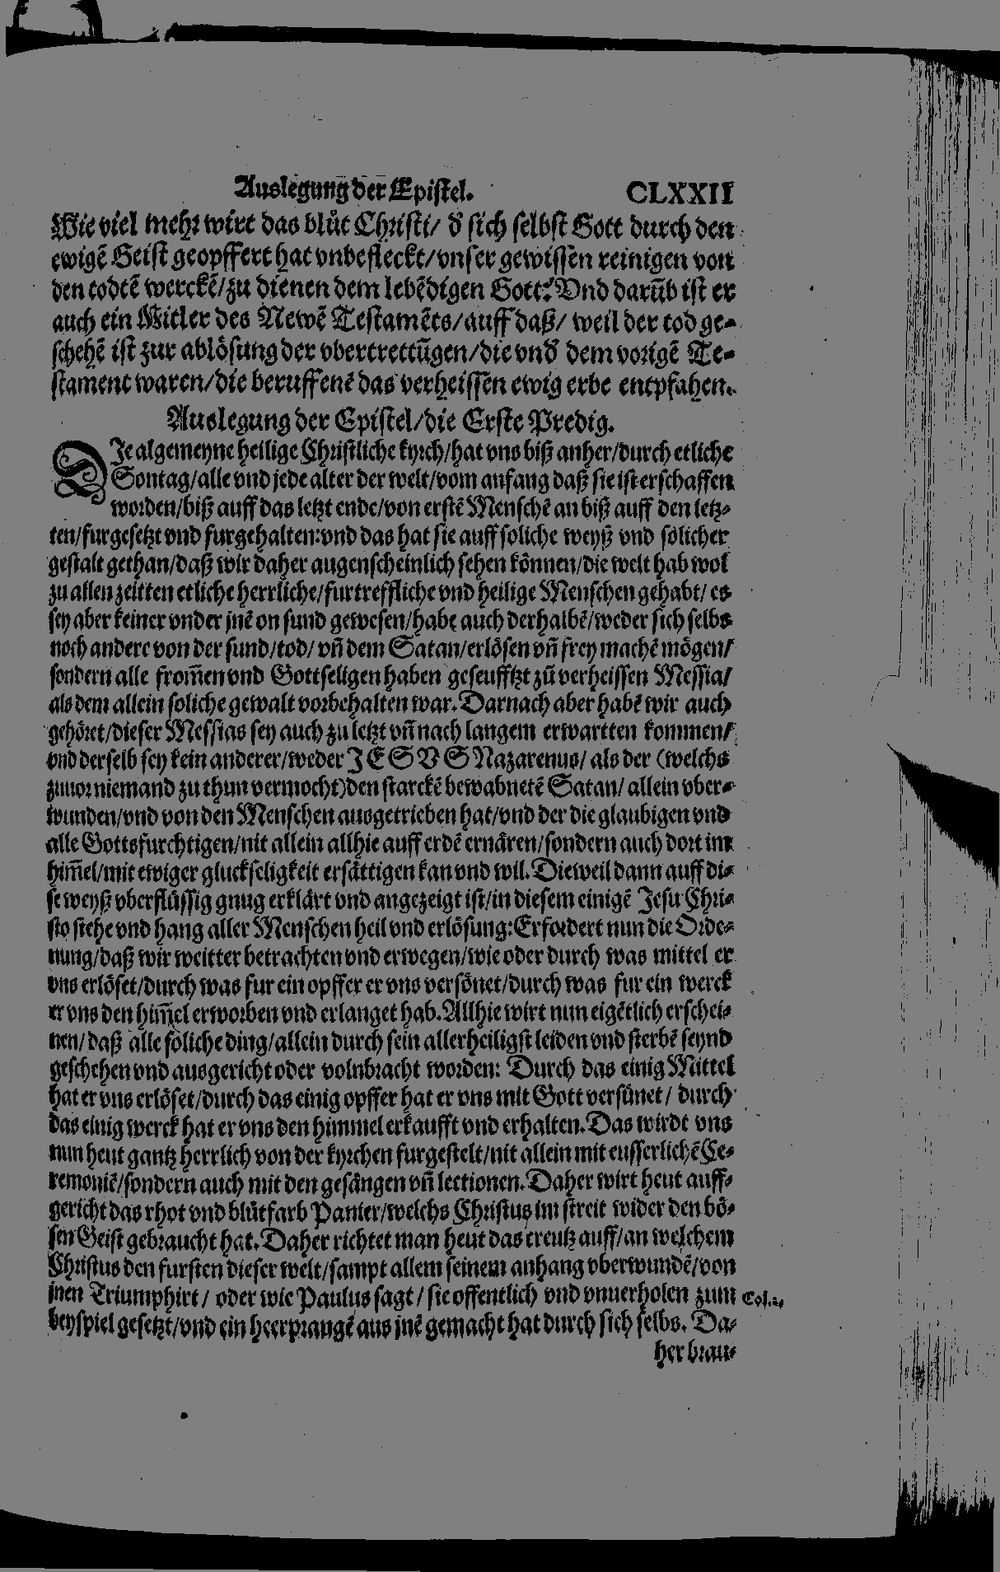 Auslegung der Epistel. CLXXII
Wie viel mehr wirt das blůt Christi/ d̄ sich selbst Gott durch den
ewigē Geist geopffert hat vnbefleckt/vnser gewissen reinigen von
den todtē werckē/zu dienen dem lebēdigen Gott? Vnd darūb ist er
auch ein Mitler des Newē Testamēts/auff daß/ weil der tod ge-
schehē ist zur ablösung der vbertrettūgen/die vnd̄ dem vorigē Te-
stament waren/die beruffenē das verheissen ewig erbe entpfahen.
Auslegung der Epistel/die Erste Predig.
DIe algemeyne heilige Christliche kyrch/hat vns biß anher/durch etliche
Sontag/alle vnd jede alter der welt/vom anfang daß sie ist erschaffen
worden/biß auff das letzt ende/von erstē Menschē an biß auff den letz-
ten/furgesetzt vnd furgehalten:vnd das hat sie auff soliche weyß vnd solicher
gestalt gethan/daß wir daher augenscheinlich sehen können/die welt hab wol
zu allen zeitten etliche herrliche/furtreffliche vnd heilige Menschen gehabt/ es
sey aber keiner vnder jnē on sund gewesen/habe auch derhalbē/weder sich selbs
noch andere von der sund/tod/ vn̄ dem Satan/erlösen vn̄ frey machē mögen/
sondern alle from̄en vnd Gottseligen haben geseufftzt zů verheissen Messia/
als dem allein soliche gewalt vorbehalten war. Darnach aber habē wir auch
gehöret/dieser Messias sey auch zu letzt vn̄ nach langem erwartten kommen/
vnd derselb sey kein anderer/weder JESVS Nazarenus/ als der (welchs
zuuor niemand zu thun vermocht) den starckē bewabnetē Satan/ allein vber-
wunden/vnd von den Menschen ausgetrieben hat/vnd der die glaubigen vnd
alle Gottsfurchtigen/nit allein allhie auff erdē ernären/sondern auch dort im
him̄el/mit ewiger gluckseligkeit ersättigen kan vnd wil. Dieweil dann auff di-
se weyß vberflüssig gnug erklärt vnd angezeigt ist/in diesem einigē Jesu Chri-
sto stehe vnd hang aller Menschen heil vnd erlösung: Erfordert nun die Orde-
nung/daß wir weitter betrachten vnd erwegen/wie oder durch was mittel er
vns erlöset/durch was fur ein opffer er vns versönet/durch was fur ein werck
er vns den him̄el erworben vnd erlanget hab. Allhie wirt nun eigētlich erschei-
nen/daß alle soliche ding/allein durch sein allerheiligst leiden vnd sterbē seynd
geschehen vnd ausgericht oder volnbracht worden: Durch das einig Mittel
hat er vns erlöset/durch das einig opffer hat er vns mit Gott versünet/ durch
das einig werck hat er vns den himmel erkaufft vnd erhalten. Das wirdt vns
nun heut gantz herrlich von der kyrchen furgestelt/nit allein mit eusserlichē Ce-
remoniē/sondern auch mit den gesängen vn̄ lectionen. Daher wirt heut auff-
gericht das rhot vnd blůtfarb Panier/welchs Christus im streit wider den bö-
sen Geist gebraucht hat. Daher richtet man heut das creutz auff/an welchem
Christus den fursten dieser welt/sampt allem seinem anhang vberwundē/von
jnen Triumphirt/ oder wie Paulus sagt/ sie offentlich vnd vnuerholen zum Col.2.
beyspiel gesetzt/vnd ein heerprangē aus jnē gemacht hat durch sich selbs. Da-
her brau-